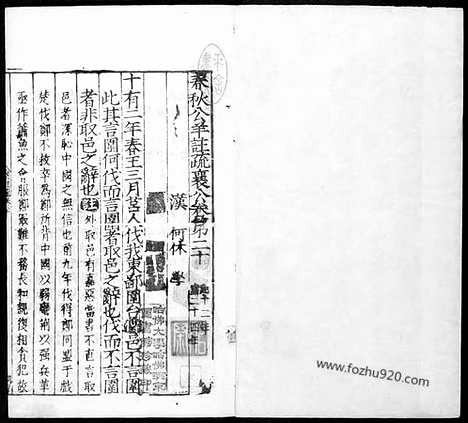 春秋公羊註疏襄公卷第二十
起十二年
盡二十四年
漢 何休 學
十有二年春王三月莒人伐我東鄙圍台邑不言圍
此其言圍何伐而言圍者取邑之辭也伐而不言圍
者非取邑之辭也註外取邑有嘉惡當書不直言取
邑者深恥中國之無信也前九年伐得鄭同盟于戲
楚伐鄭不救卒為鄭所背中國以弱蠻荊以強兵革
亟作蕭魚之會服鄭最難不務長和親復相貪犯故
哈佛大學哈佛燕京
圖書館珍藏印
www.fozhu920.com